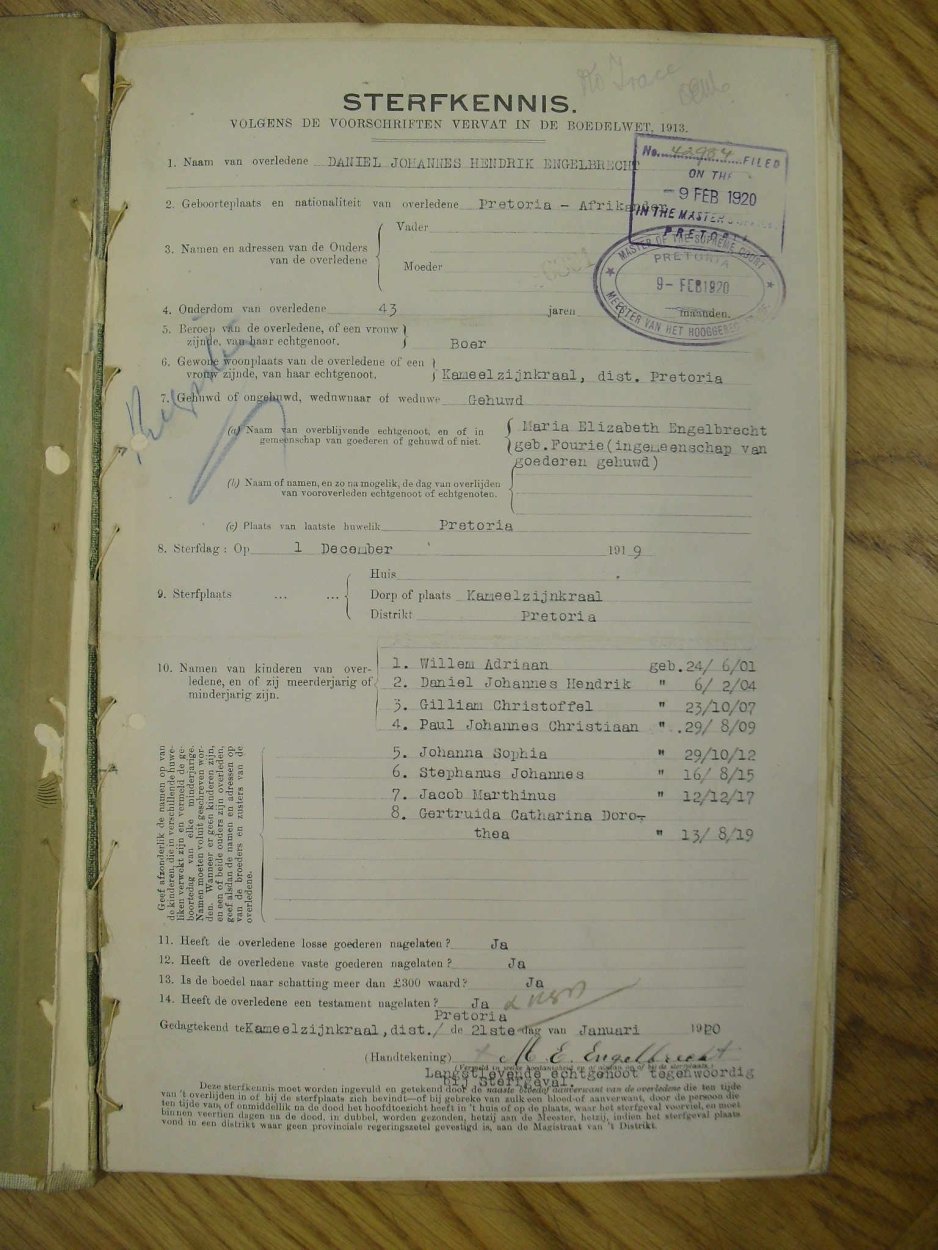 No Trace
STERFKENNIS.
VOLGENS DE VOORSCHRIFTEN VERVAT IN DE BOEDELWET, 1913.
No. 42984 FILED
ON THE
- 9 FEB 1920
IN THE MASTER'S
PRETORIA
1. Naam van overledene DANIEL JOHANNES HENDRIK ENGELBRECHT
2. Geboorteplaats en nationaliteit van overledene Pretoria - Afrikander
MASTER OF THE SUPREME COURT
PRETORIA
9- FEB 1920
MEESTER VAN HET HOOGGEREC
3. Namen en adressen van de Ouders
van de overledene
Vader
Moeder
4. Ouderdom van overledene 43 jaren maanden.
5. Beroep van de overledene, of een vrouw
zijnde, van haar echtgenoot. Boer
6. Gewone woonplaats van de overledene of een
vrouw zijnde, van haar echtgenoot. Kameelzijnkraal, dist. Pretoria
7. Gehuwd of ongehuwd, weduwnaar of weduwe Gehuwd
(a) Naam van overblijvende echtgenoot, en of in
gemeenschap van goederen of gehuwd of niet.
Maria Elizabeth Engelbrecht
geb. Fourie(ingemeenschap van
goederen gehuwd)
(b) Naam of namen, en zo na mogelik, de dag van overlijden
van vooroverleden echtgenoot of echtgenoten.
(c) Plaats van laatste huwelik Pretoria
8. Sterfdag: Op 1 December 1919
9. Sterfplaats ... ...
Huis
Dorp of plaats Kameelzijnkraal
Distrikt Pretoria
10. Namen van kinderen van over-
ledene, en of zij meerderjarig of
minderjarig zijn.
1. Willem Adriaan geb. 24/ 6/01
2. Daniel Johannes Hendrik " 6/ 2/04
3. Gilliam Christoffel " 23/10/07
4. Paul Johannes Christiaan " .29/ 8/09
5. Johanna Sophia " 29/10/12
6. Stephanus Johannes " 16/ 8/15
7. Jacob Marthinus " 12/12/17
8. Gertruida Catharina Doro-
thea " 13/ 8/19
Geef afzonderlik de namen op van
de kinderen, die in verschillende huwe-
liken verwekt zijn en vermeld de ge-
boortedag van elke minderjarige.
Namen moeten voluit geschreven wor-
den. Wanneer er geen kinderen zijn,
en een of beide ouders zijn overleden,
geef alsdan de namen en adressen op
van de broeders en zusters van de
overledene.
11. Heeft de overledene losse goederen nagelaten? Ja
12. Heeft de overledene vaste goederen nagelaten? Ja
13. Is de boedel naar schatting meer dan £300 waard? Ja
14. Heeft de overledene een testament nagelaten? Ja
Pretoria
Gedagtekend te Kameelzijnkraal, dist./ de 21ste dag van Januari 1920
(Handtekening) M E Engelbrecht
Langstlevende echtgenoot tegenwoordig
bij Sterfgeval.
Deze sterfkennis moet worden ingevuld en getekend door de naaste bloed of aanverwant van de overledene die ten tijde
van 't overlijden in of bij de sterfplaats zich bevindt—of bij gebreke van zulk een bloed of aanverwant, door de persoon die
ten tijde van, of onmiddellik na de dood het hoofdtoezicht heeft in 't huis of op de plaats, waar het sterfgeval voorviel, en moet
binnen veertien dagen na de dood, in dubbel, worden gezonden, hetzij aan de Meester, hetzij, indien het sterfgeval plaats
vond in een distrikt waar geen provinciale regeringszetel gevestigd is, aan de Magistraat van 't Distrikt.